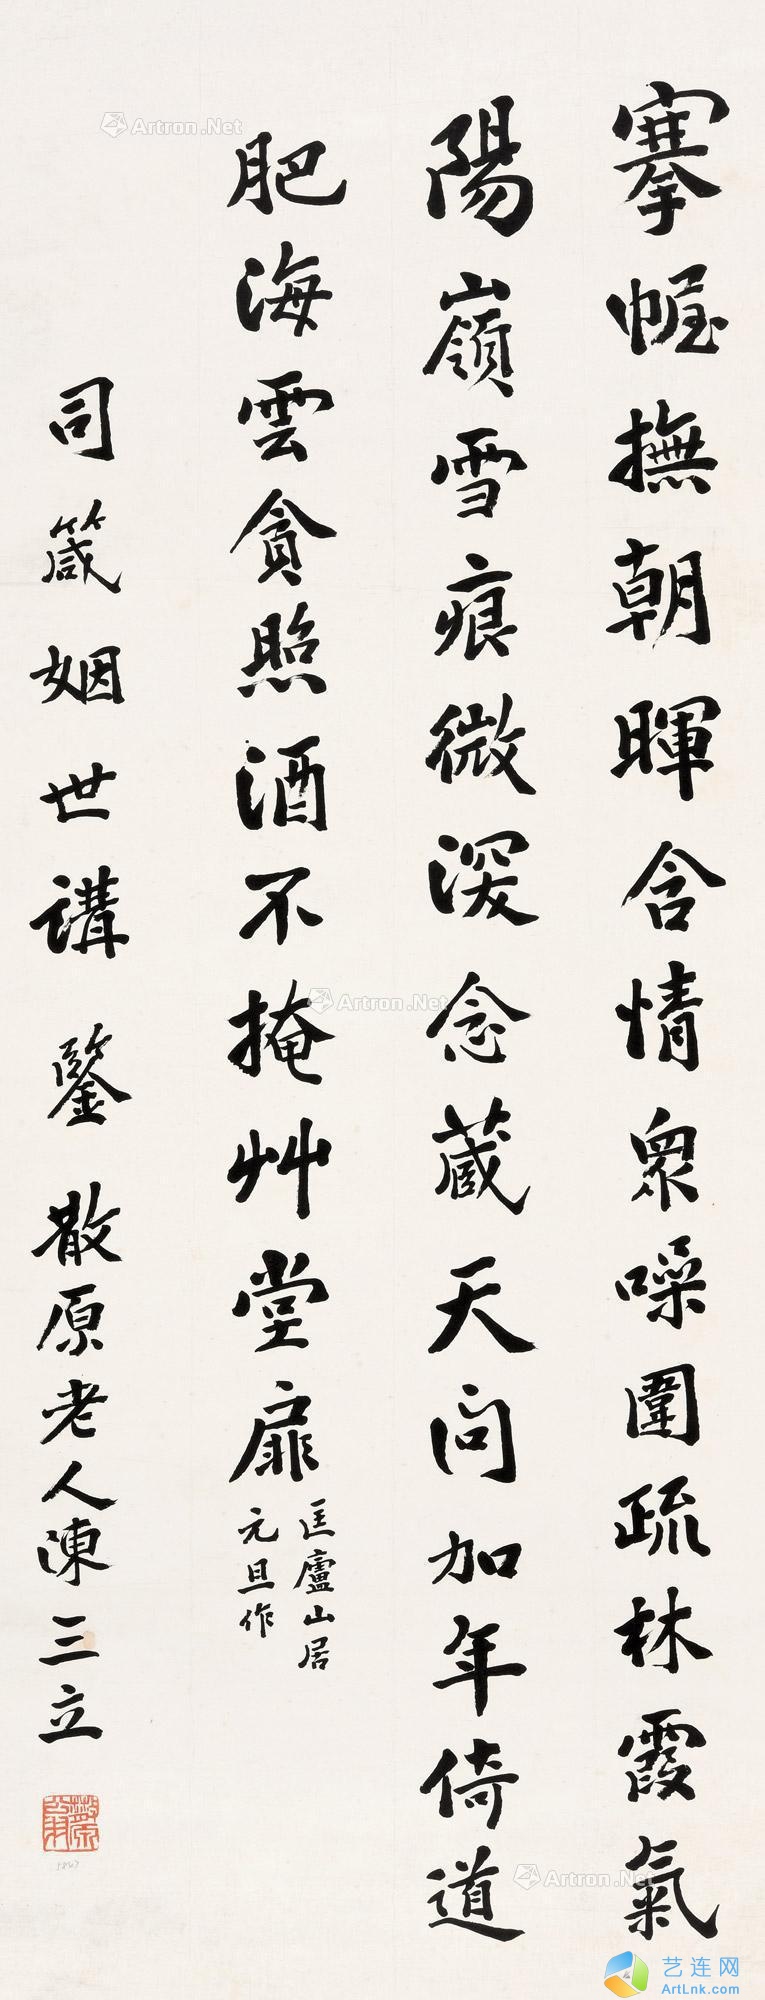 搴幄撫朝暉含情衆噪圍疏林霞氣
陽嶺雪痕微深念蔵天问加年倚道
肥海雲貪照酒不掩艸堂扉
匡廬山居
元旦作
司箴姻世講 鑒 散原老人陳三立
Artron.Net
Artron.Net
Artron.Net
艺连网
ArtLnk.com